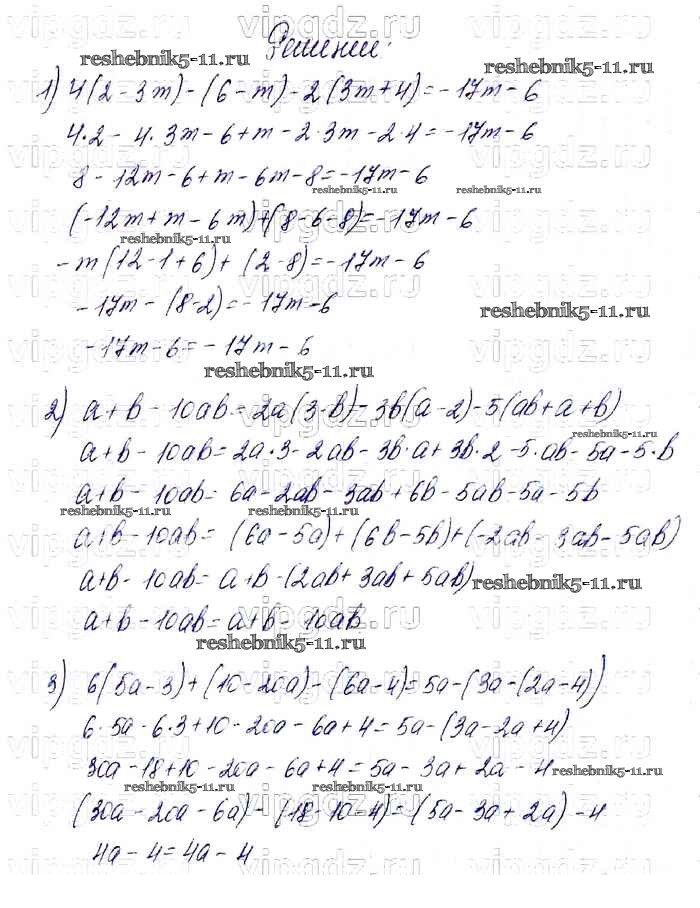 Решение:
reshebnik5-11.ru
1) 4(2-3m)-(6-m)-2(3m+4)=-17m-6
4·2-4·3m-6+m-2·3m-2·4=-17m-6
8-12m-6+m-6m-8=-17m-6
reshebnik5-11.ru reshebnik5-11.ru
(-12m+m-6m)+(8-6-8)=-17m-6
reshebnik5-11.ru
-m(12-1+6)+(2-8)=-17m-6
-17m-(8-2)=-17m-6
reshebnik5-11.ru
-17m-6=-17m-6
reshebnik5-11.ru
2) a+b-10ab=2a(3-b)-3b(a-2)-5(ab+a+b)
reshebnik5-11.ru
a+b-10ab=2a·3-2ab-3b·a+3b·2-5·ab-5a-5·b
a+b-10ab=6a-2ab-3ab+6b-5ab-5a-5b
reshebnik5-11.ru reshebnik5-11.ru
a+b-10ab=(6a-5a)+(6b-5b)+(-2ab-3ab-5ab)
a+b-10ab=a+b-(2ab+3ab+5ab)
reshebnik5-11.ru
a+b-10ab=a+b-10ab
reshebnik5-11.ru
3) 6(5a-3)+(10-20a)-(6a-4)=5a-(3a-(2a-4))
6·5a-6·3+10-20a-6a+4=5a-(3a-2a+4)
30a-18+10-20a-6a+4=5a-3a+2a-4
reshebnik5-11.ru reshebnik5-11.ru
(30a-20a-6a)-(18-10-4)=(5a-3a+2a)-4
4a-4=4a-4
vipgdz.ru